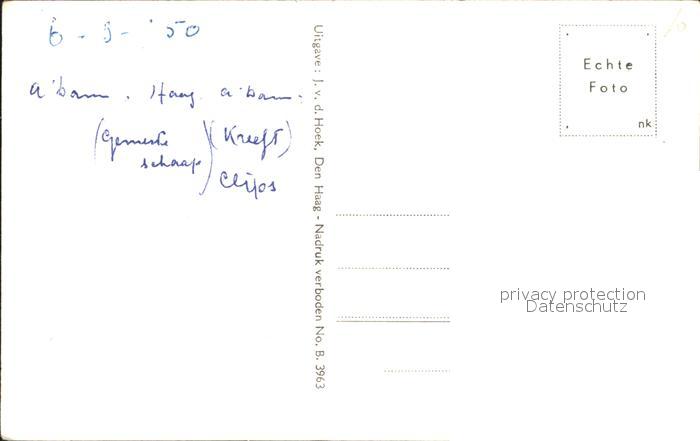 6 - 9 - '50
A'dam. Haag. A'dam.
(Gemeente (Kreeft)
schaap)
Clijos
Uitgave: J. v. d. Hoek, Den Haag - Nadruk verboden No. B. 3963
Echte
Foto
nk
privacy protection
Datenschutz